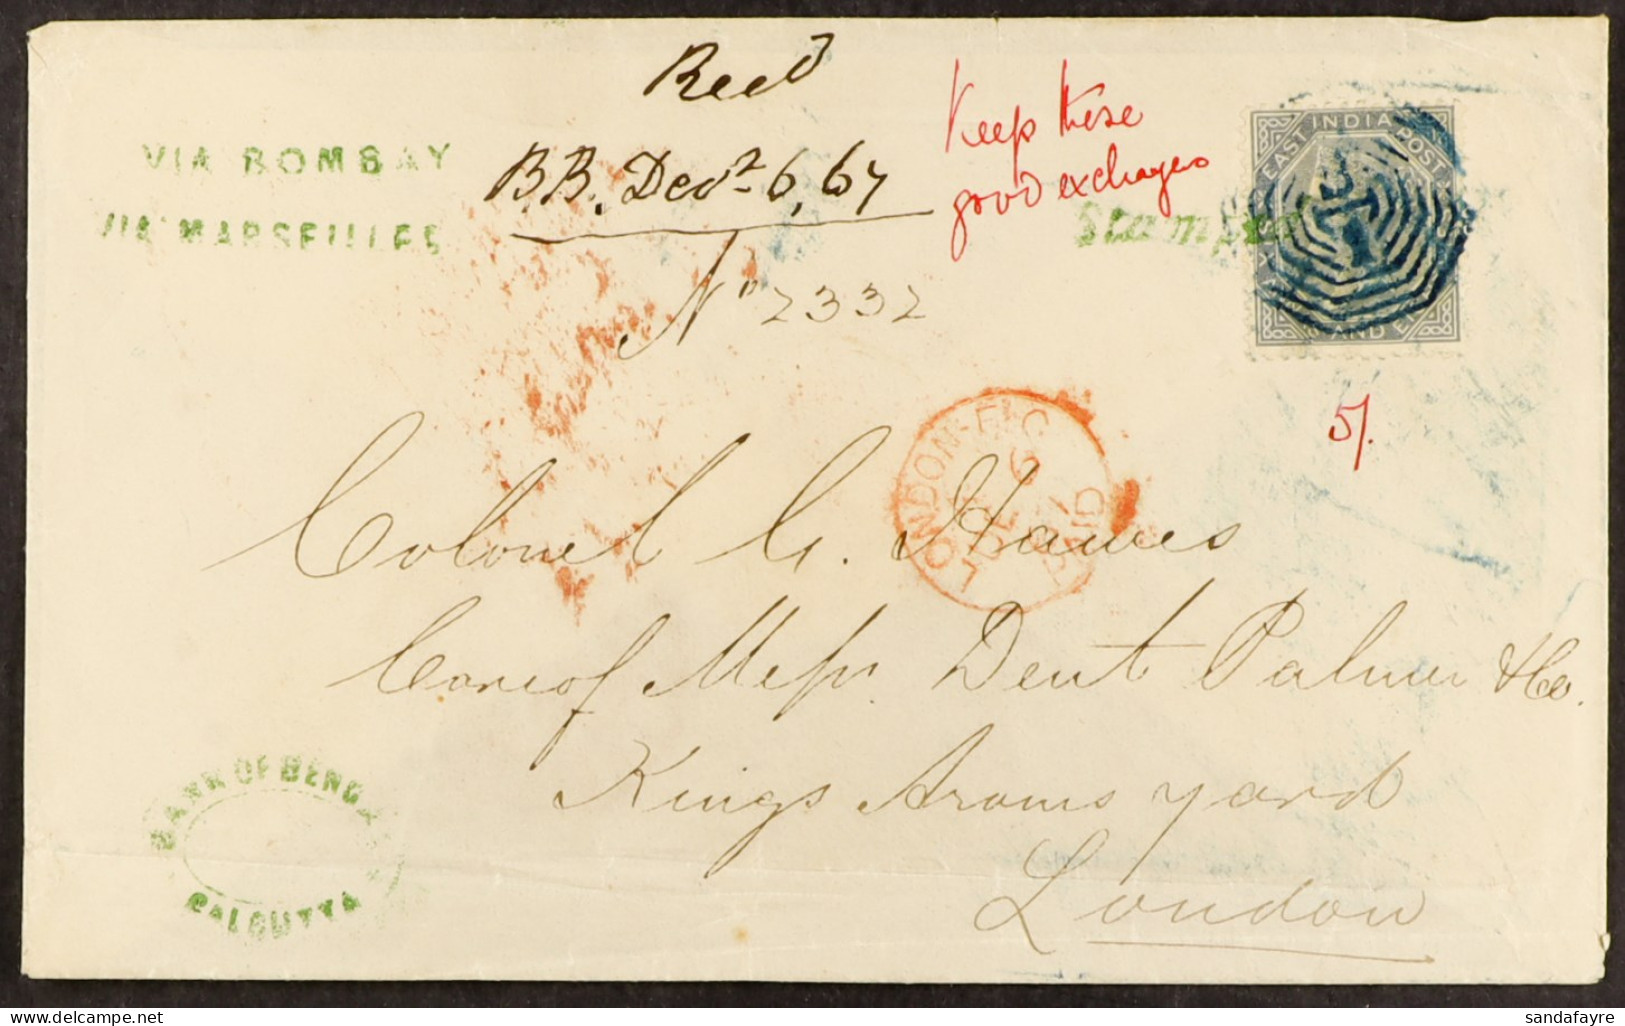 Recd
B.B. Decr 6, 67
No 2332
Keep these
good exchanges
VIA BOMBAY
VIA MARSEILLES
Stamped
EAST INDIA POST
AND EI
5/.
LONDON-E.C
PAID
Colonel G. Hawes
Care of Messrs. Dent Palmer & Co.
Kings Arms yard
London
BANK OF BENGA
CALCUTTA
sandafayre.com